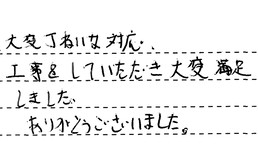 大変丁ねいな対応、
工事をしていただき大変満足
しました。
ありがとうございました。